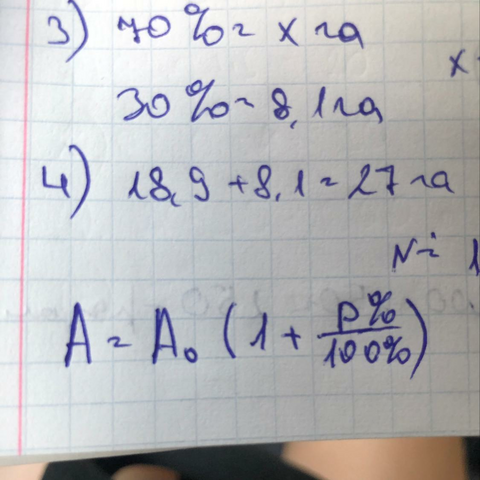 3) 70% = x га
x
30% = 8,1 га
4) 18,9 + 8,1 = 27 га
N = 1
A = A₀ (1 + p%/100%)